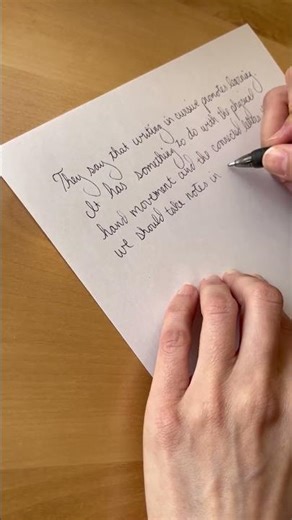 They say that writing in cursive promotes learning.
It has something to do with the physical
hand movement and the conscious
we should take notes in